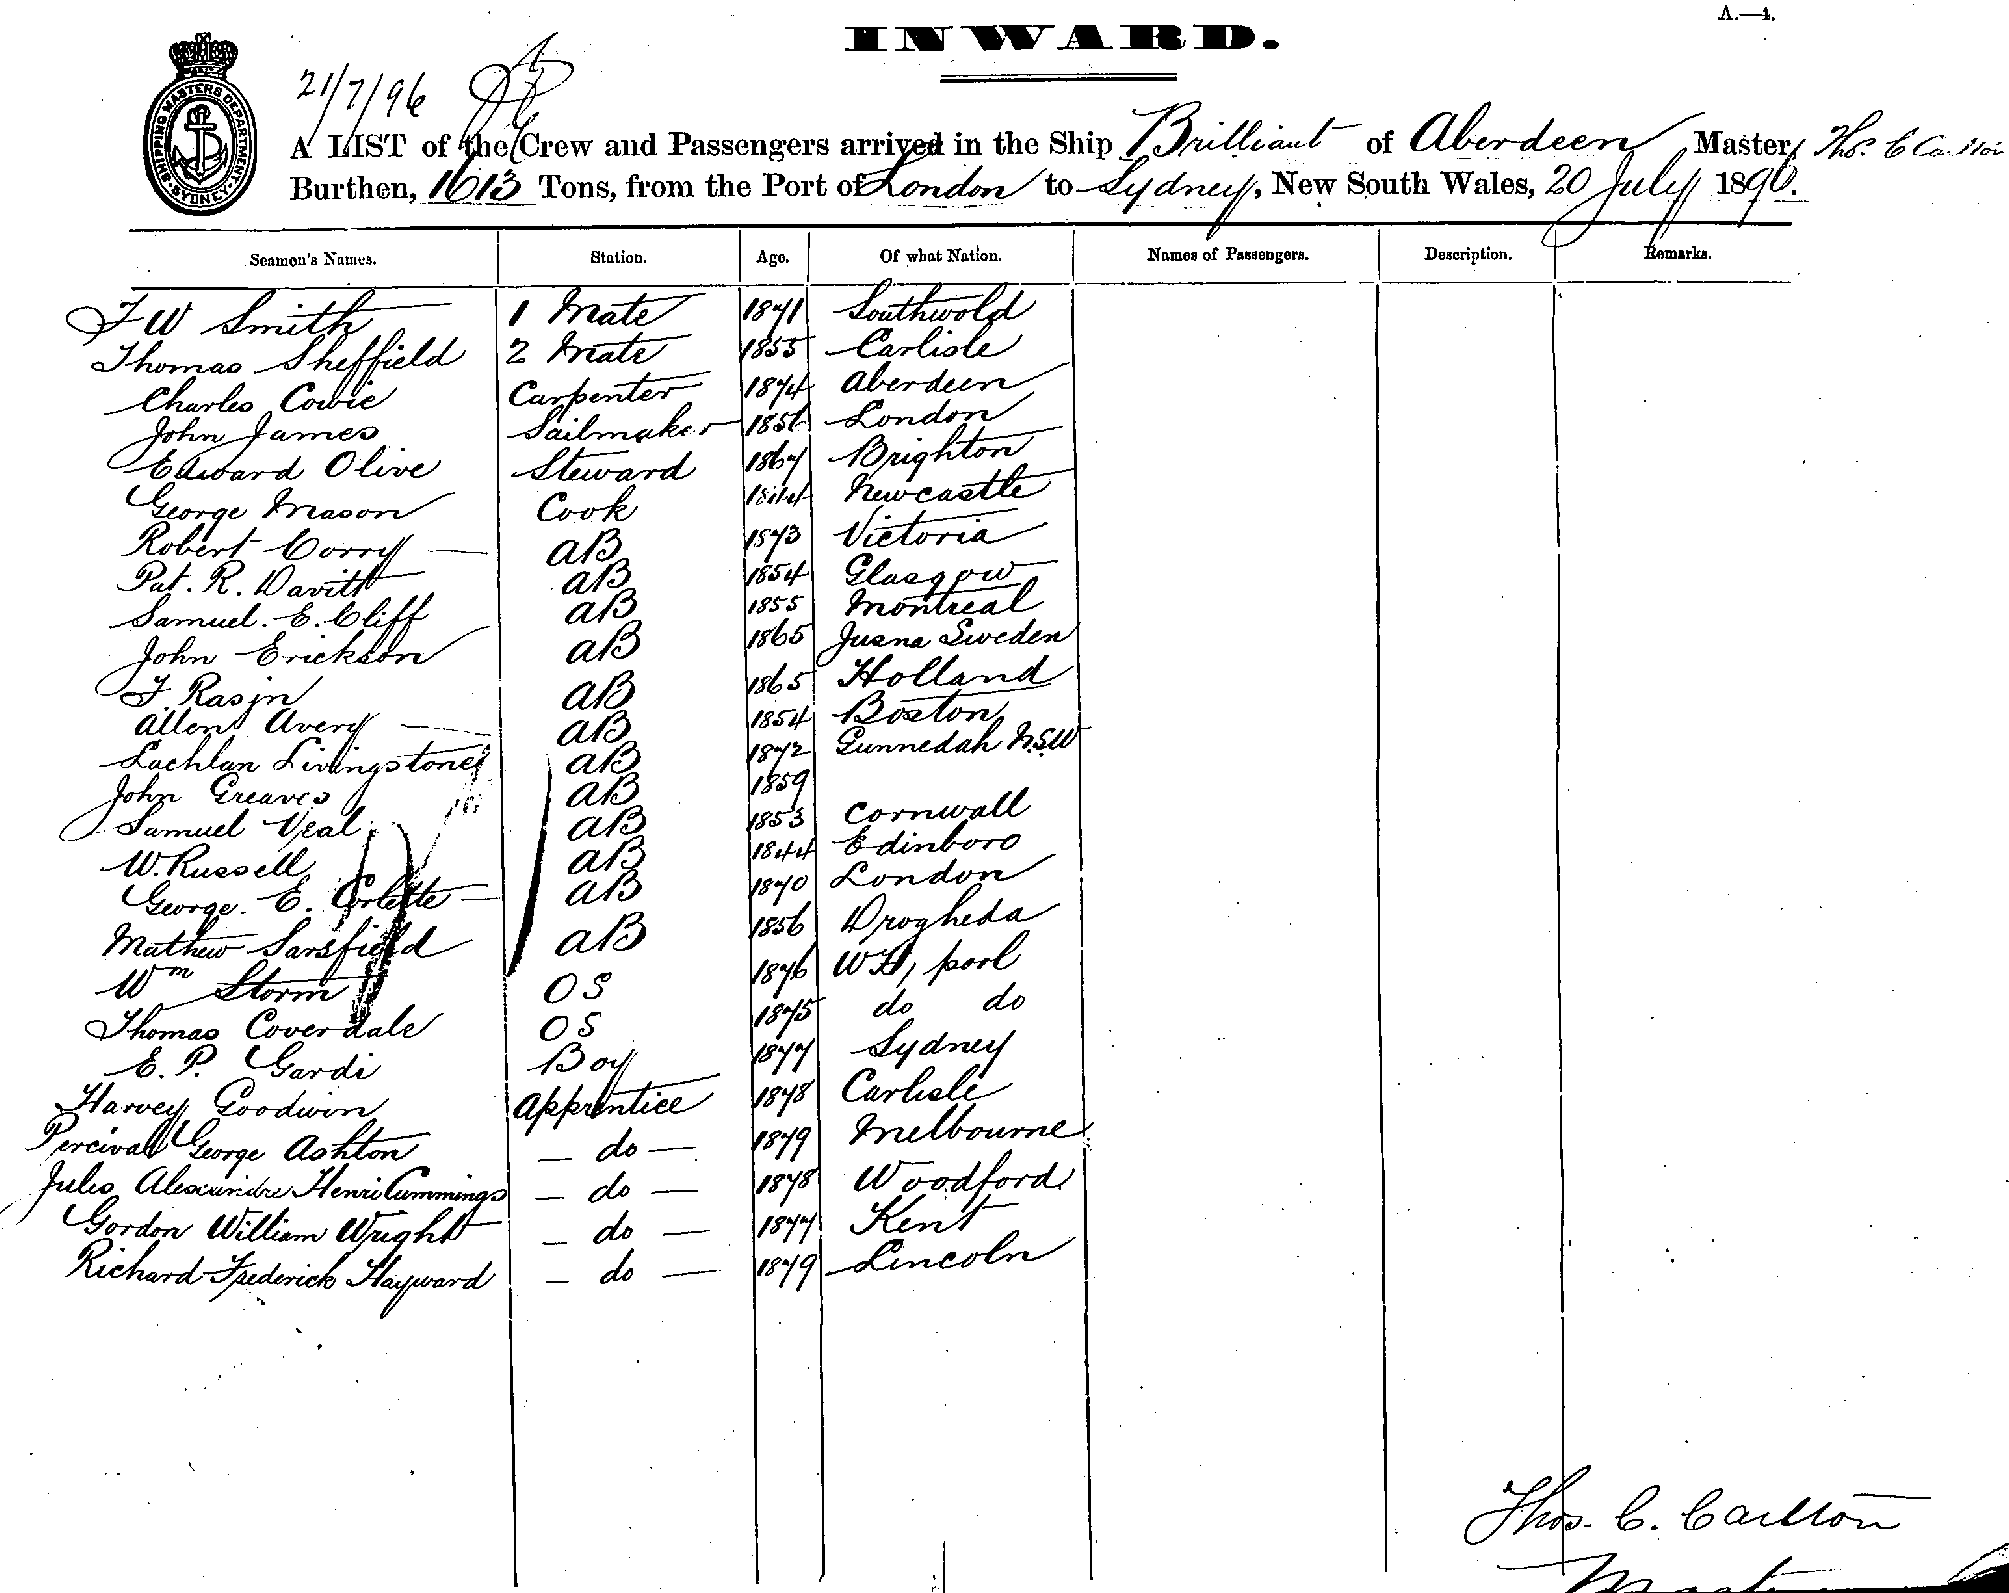 A.—4.
INWARD.
SHIPPING MASTERS DEPARTMENT. SYDNEY.
21/7/96
A LIST of the Crew and Passengers arrived in the Ship Brilliant of Aberdeen Master, Thos. C Carlton
Burthen, 1613 Tons, from the Port of London to Sydney, New South Wales, 20 July 1896.
Seamen's Names. Station. Age. Of what Nation. Names of Passengers. Description. Remarks.
F W Smith 1 Mate 1871 Southwold
Thomas Sheffield 2 Mate 1855 Carlisle
Charles Cowie Carpenter 1874 Aberdeen
John James Sailmaker 1856 London
Edward Olive Steward 1867 Brighton
George Mason Cook 1844 Newcastle
Robert Corry — AB 1873 Victoria
Pat. R. Davitt AB 1854 Glasgow
Samuel. E. Cliff AB 1855 Montreal
John Erickson AB 1865 Sweden
F. Rasjn AB 1865 Holland
Allen Avery — AB 1854 Boston
Lachlan Livingstone AB 1872 Gunnedah N.S.W
John Greaves AB 1859
Samuel Veal AB 1853 Cornwall
W. Russell AB 1844 Edinboro
George. E. Corlette — AB 1870 London
Mathew Sarsfield AB 1856 Drogheda
Wm Storm OS 1876 pool
Thomas Coverdale OS 1875 do do
E. P. Gardi Boy 1877 Sydney
Harvey Goodwin Apprentice 1878 Carlisle
Percival George Ashton — do — 1879 Melbourne
Jules Alexandre Henri Cummings — do — 1878 Woodford
Gordon William Wright — do — 1877 Kent
Richard Frederick Hayward — do — 1879 Lincoln
Thos. C. Carlton